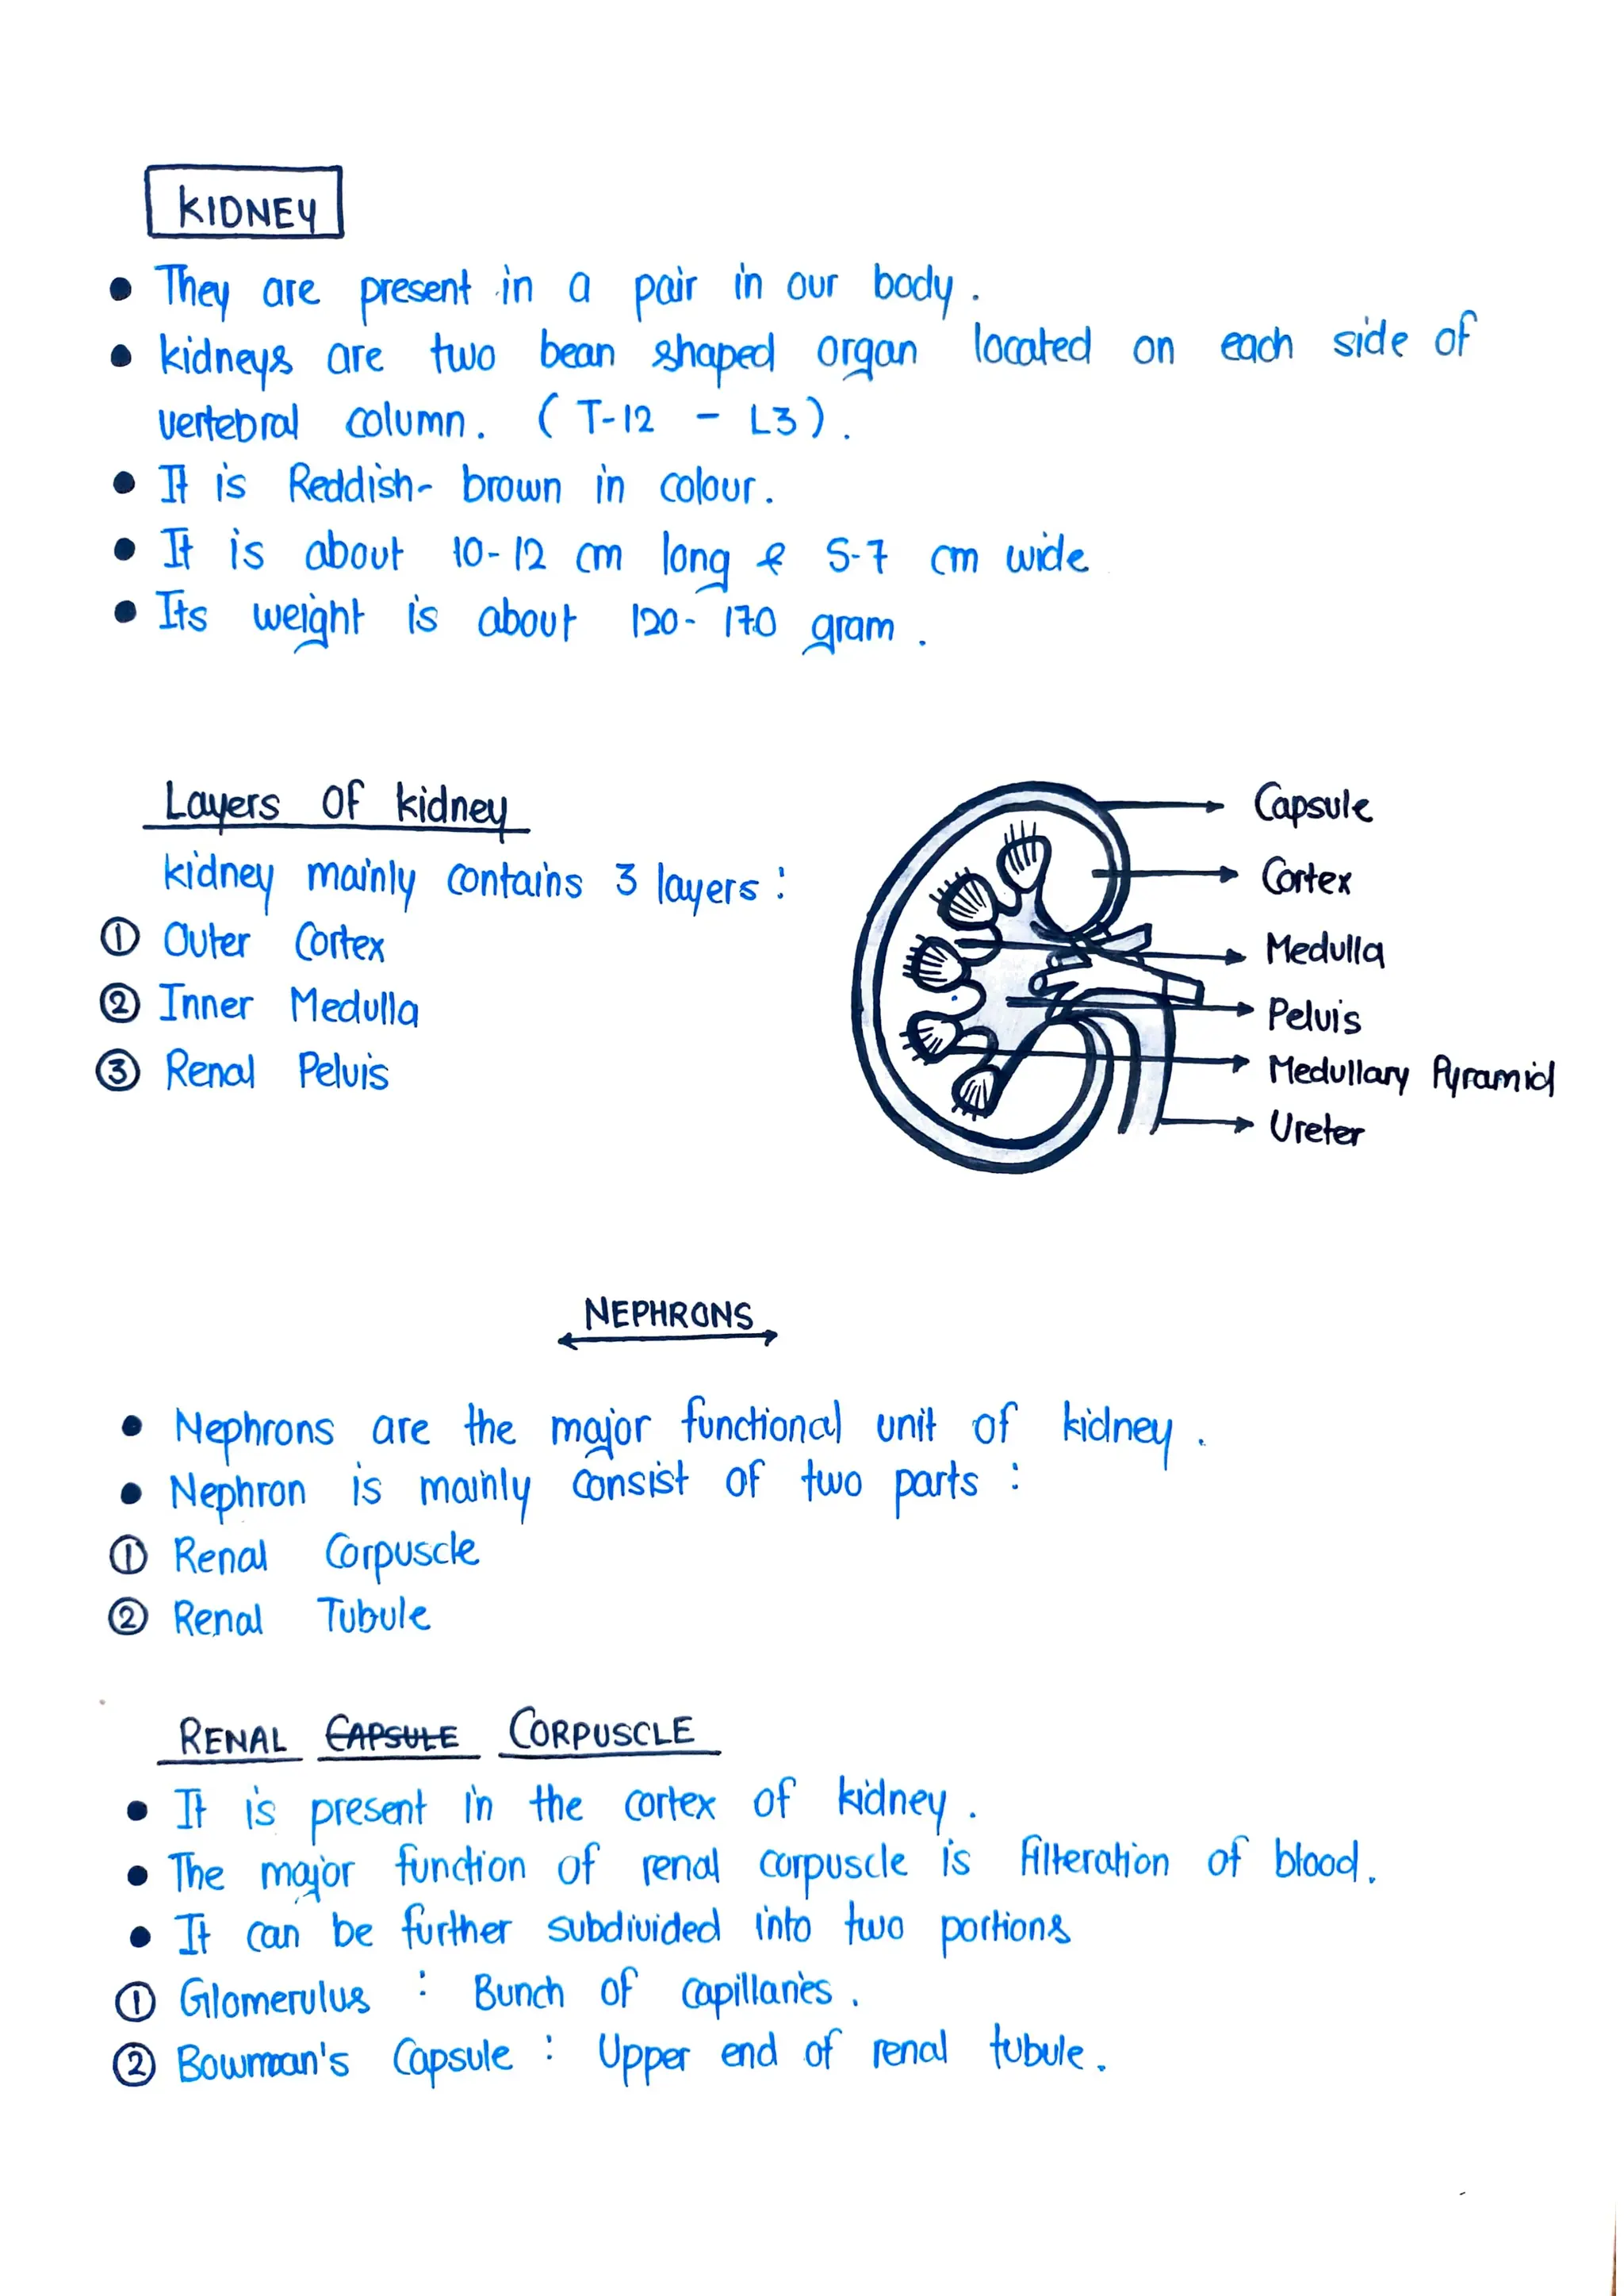 KIDNEY
• They are present in a pair in our body.
• kidneys are two bean shaped organ located on each side of
vertebral column. (T-12 - L3).
• It is Reddish- brown in colour.
• It is about 10-12 cm long & 5-7 cm wide
• Its weight is about 120-170 gram.
Layers Of kidney
kidney mainly contains 3 layers:
① Outer Cortex
② Inner Medulla
③ Renal Pelvis
Capsule
Cortex
Medulla
Pelvis
Medullary Pyramid
Ureter
NEPHRONS
• Nephrons are the major functional unit of kidney.
• Nephron is mainly consist of two parts:
① Renal Corpuscle
② Renal Tubule
RENAL CAPSULE CORPUSCLE
• It is present in the cortex of kidney.
• The major function of renal corpuscle is filteration of blood.
• It can be further subdivided into two portions
① Glomerulus : Bunch of capillaries.
② Bowman's Capsule : Upper end of renal tubule.